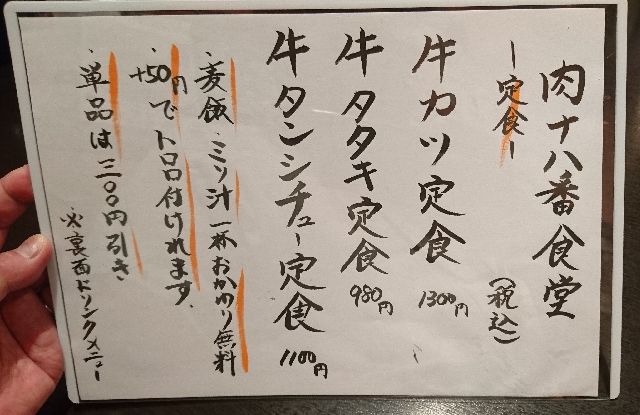 肉十八番食堂
ー定食ー
(税込)
牛カツ定食 1300円
牛タタキ定食 980円
牛タンシチュー定食 1100円
・麦飯・ミソ汁一杯おかわり無料
・+50円でトロロ付けれます.
・単品は三〇〇円引き
※裏面ドリンクメニュー